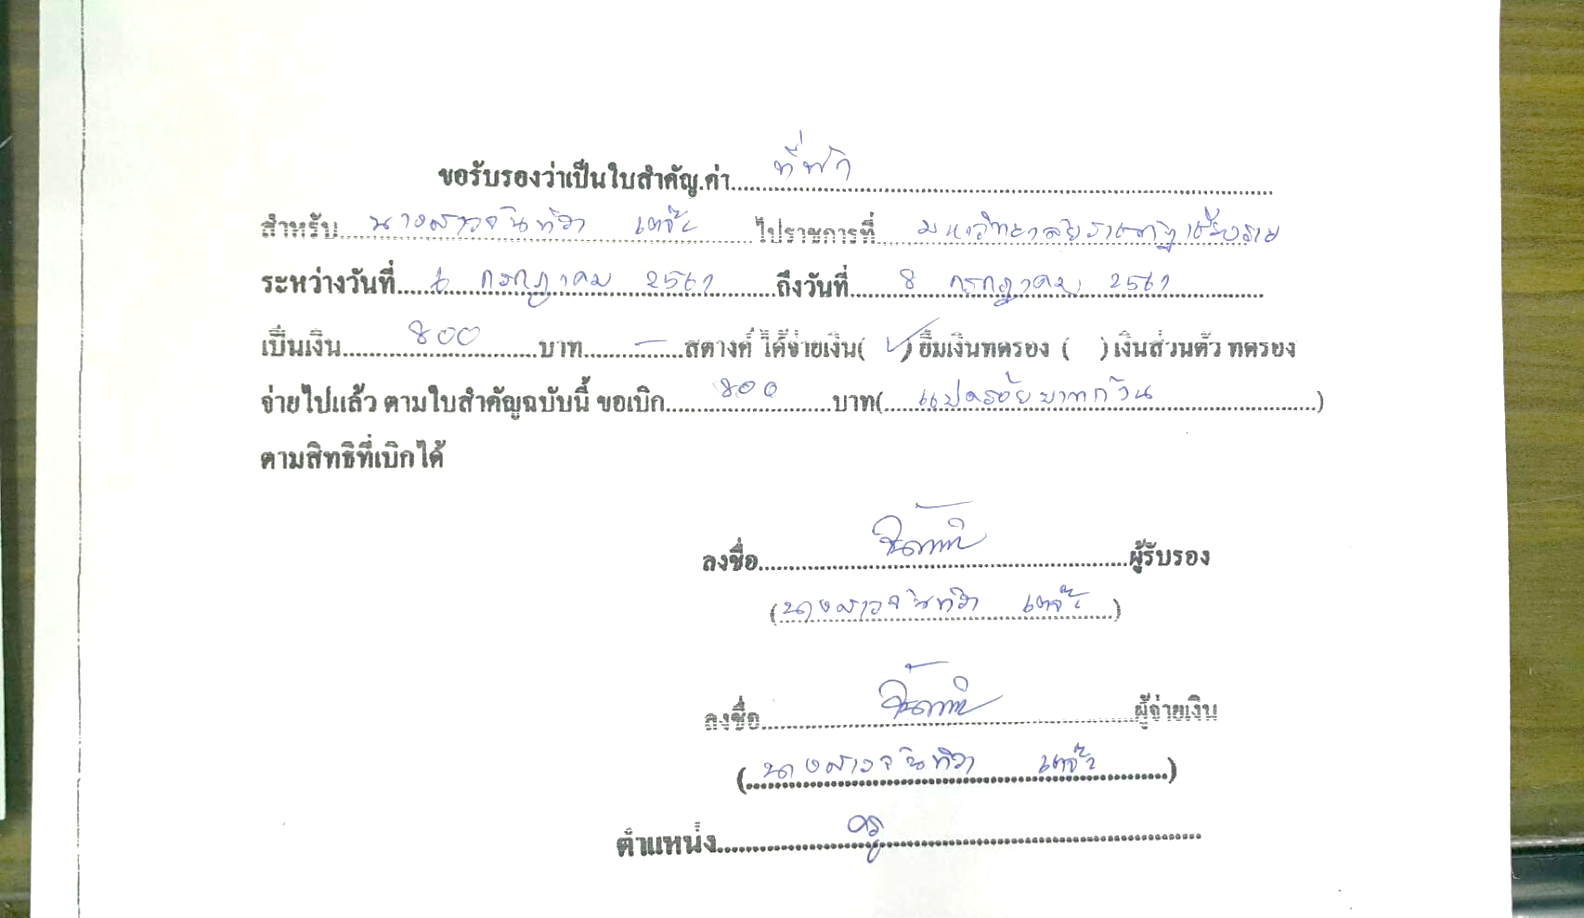 ขอรับรองว่าเป็นใบสำคัญ.ค่า ที่พัก
สำหรับ นางสาวจันทิวา เตจ๊ะ ไปราชการที่ มหาวิทยาลัยราชภัฏเชียงราย
ระหว่างวันที่ 6 กรกฎาคม 2561 ถึงวันที่ 8 กรกฎาคม 2561
เป็นเงิน 800 บาท - สตางค์ ได้จ่ายเงิน( ✓ ) ยืมเงินทดรอง ( ) เงินส่วนตัว ทดรอง
จ่ายไปแล้ว ตามใบสำคัญฉบับนี้ ขอเบิก 800 บาท( แปดร้อยบาทถ้วน )
ตามสิทธิที่เบิกได้
ลงชื่อ ผู้รับรอง
(นางสาวจันทิวา เตจ๊ะ)
ลงชื่อ ผู้จ่ายเงิน
(นางสาวจันทิวา เตจ๊ะ)
ตำแหน่ง ครู